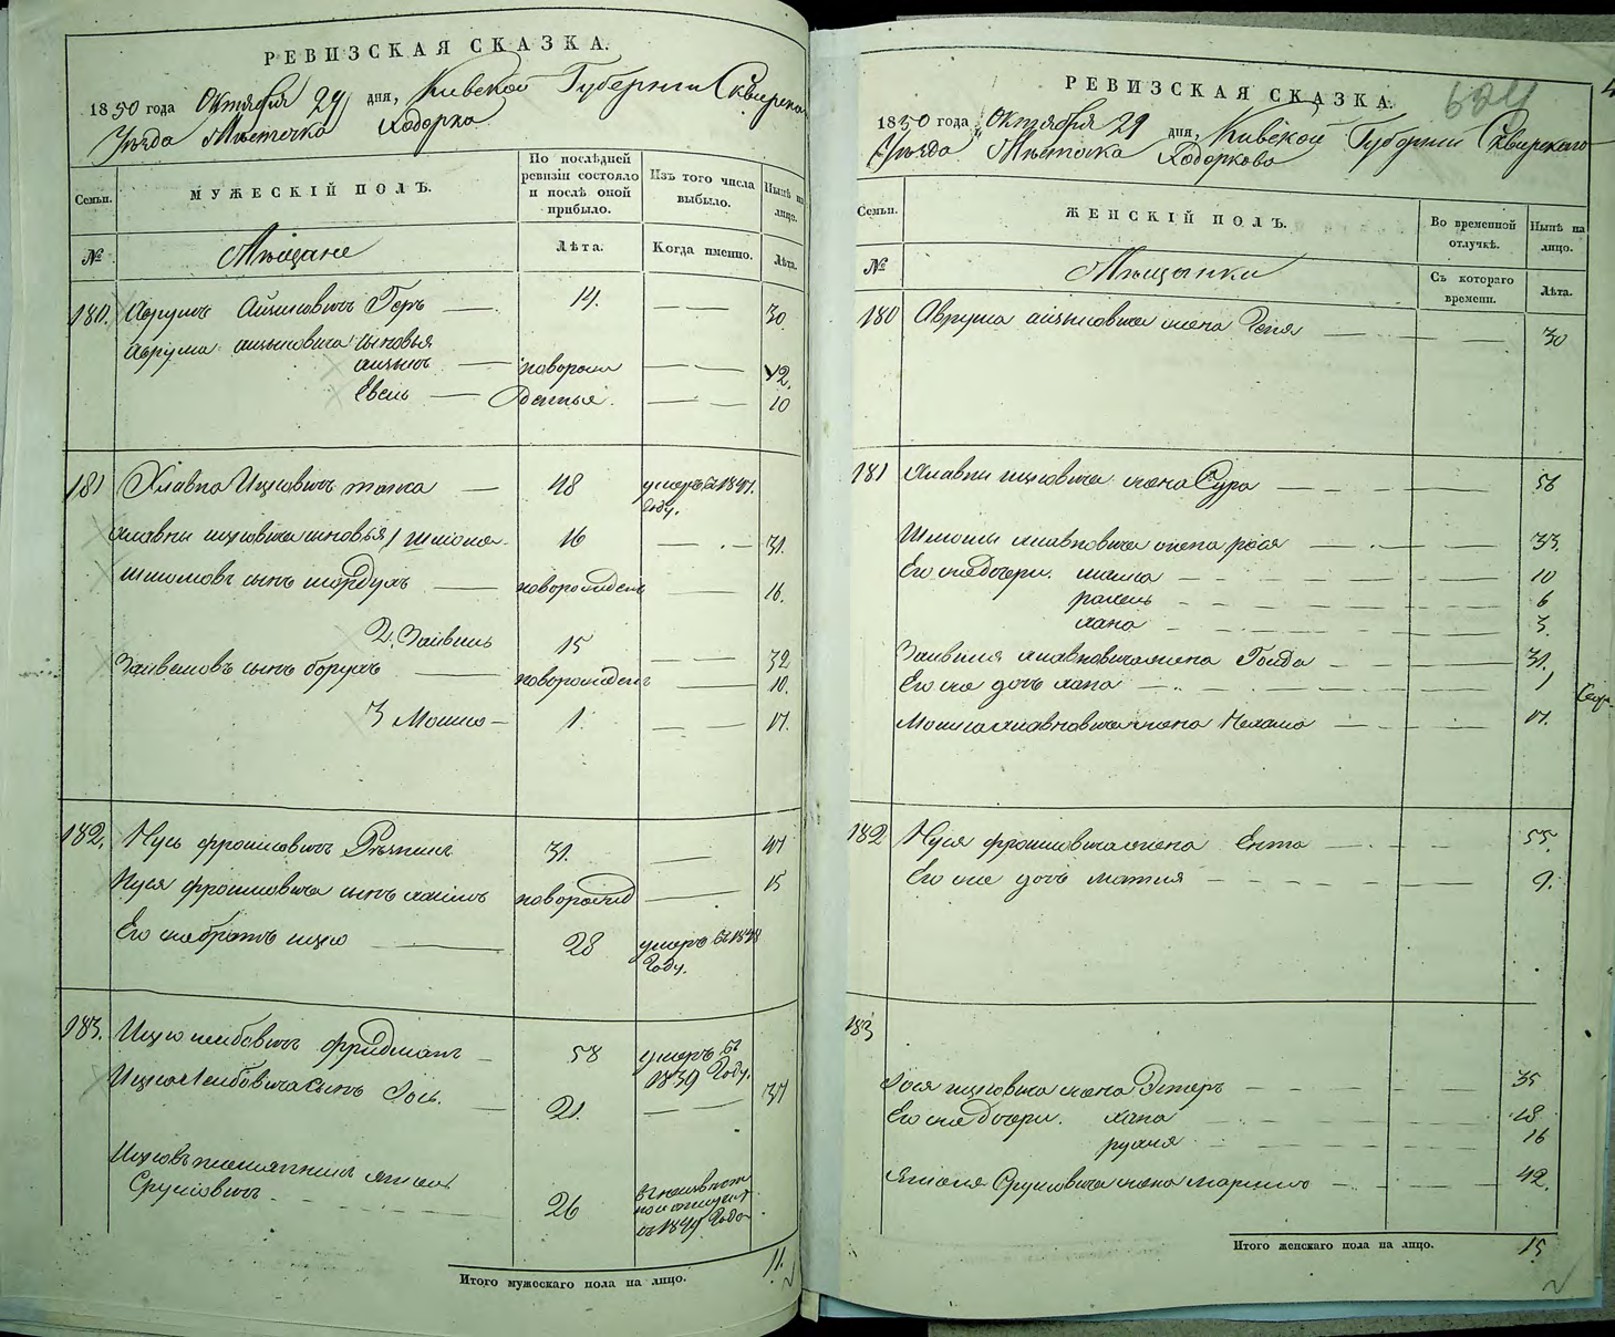 РЕВИЗСКАЯ СКАЗКА.
1850 года Октября 29 дня, Кіевской Губерніи Сквирскаго
Уѣзда Мѣстечка Ходорко
Семьи.
МУЖЕСКІЙ ПОЛЪ.
По послѣдней ревизіи состояло и послѣ оной прибыло.
Изъ того числа выбыло.
Нынѣ на лицо.
№
Мѣщане
Лѣта.
Когда именно.
Лѣта.
180. Аврумъ Айзиковичъ — 14. — 30.
Аврума айзиковича сыновья
айзикъ — новорож — 12.
Евель — денные. — 10
181 Хлавна Ицковичъ — 48 умеръ въ 1847.
году.
хлавны ицковича сыновья 1 шлиома 16 — 31.
шлиомовъ сынъ мордухъ — новорожденъ — 16.
2. Зайвель 15 — 32
Зайвеловъ сынъ борухъ — новорожденъ — 10.
3 Мошко — 1. — 17.
182. Нусь фроимовичъ 31. — 47
Нуся фроимовича сынъ хаимъ новорожд — 15
Его же братъ ицко — 28 умеръ въ 1848
Году.
183. Ицко лейбовичъ фридманъ — 58 умеръ въ
1839 Году.
Ицка Лейбовича сынъ Іось. — 21. — 37
Ицковъ племянникъ
Срулиовичъ — 26
съ 1849 Года
Итого мужескаго пола на лицо. 11.
РЕВИЗСКАЯ СКАЗКА.
624
1850 года Октября 29 дня, Кіевской Губерніи Сквирскаго
Уѣзда Мѣстечка Ходоркова
Семьи.
ЖЕНСКІЙ ПОЛЪ.
Во временной отлучкѣ.
Нынѣ на лицо.
№
Мѣщанки
Съ котораго времени.
Лѣта.
180 Аврума айзиковича жена — 30
181 хлавны ицковича жена Сура — 56
Шлиомы хлавновича жена рося — 33.
Его же дочери. — 10
рахель — 6
хана — 3.
Зайвеля хлавновича жена Голда — 31.
Его же дочь хана — 1
Мошка хлавновича жена Нехама — 17.
182 Нуся фроимовича жена Ента — 55.
Его же дочь — 9.
183
Іося ицковича жена Эстеръ — 35
Его же дочери. хана — 18
рухля — 16
Срулиовича жена — 42.
Итого женскаго пола на лицо. 15